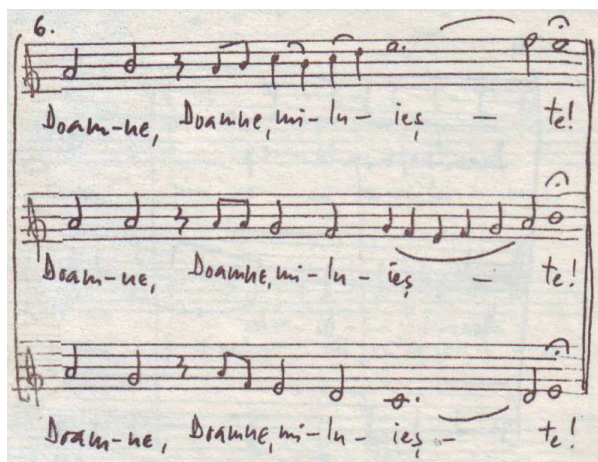 6.
Doam-ne, Doamne, mi-lu-ieș - te!
Doam-ne, Doamne, mi-lu-ieș - te!
Doam-ne, Doamne, mi-lu-ieș - te!